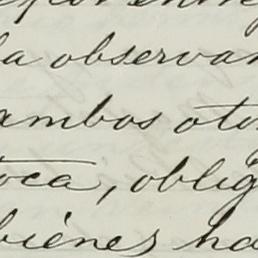 la observan
ambos oto
toca, oblig
bienes ha